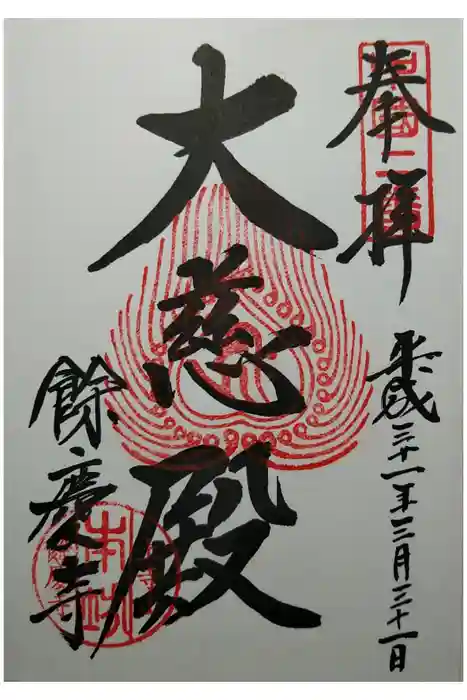 奉拝
平成三十一年三月三十一日
大慈殿
餘慶寺